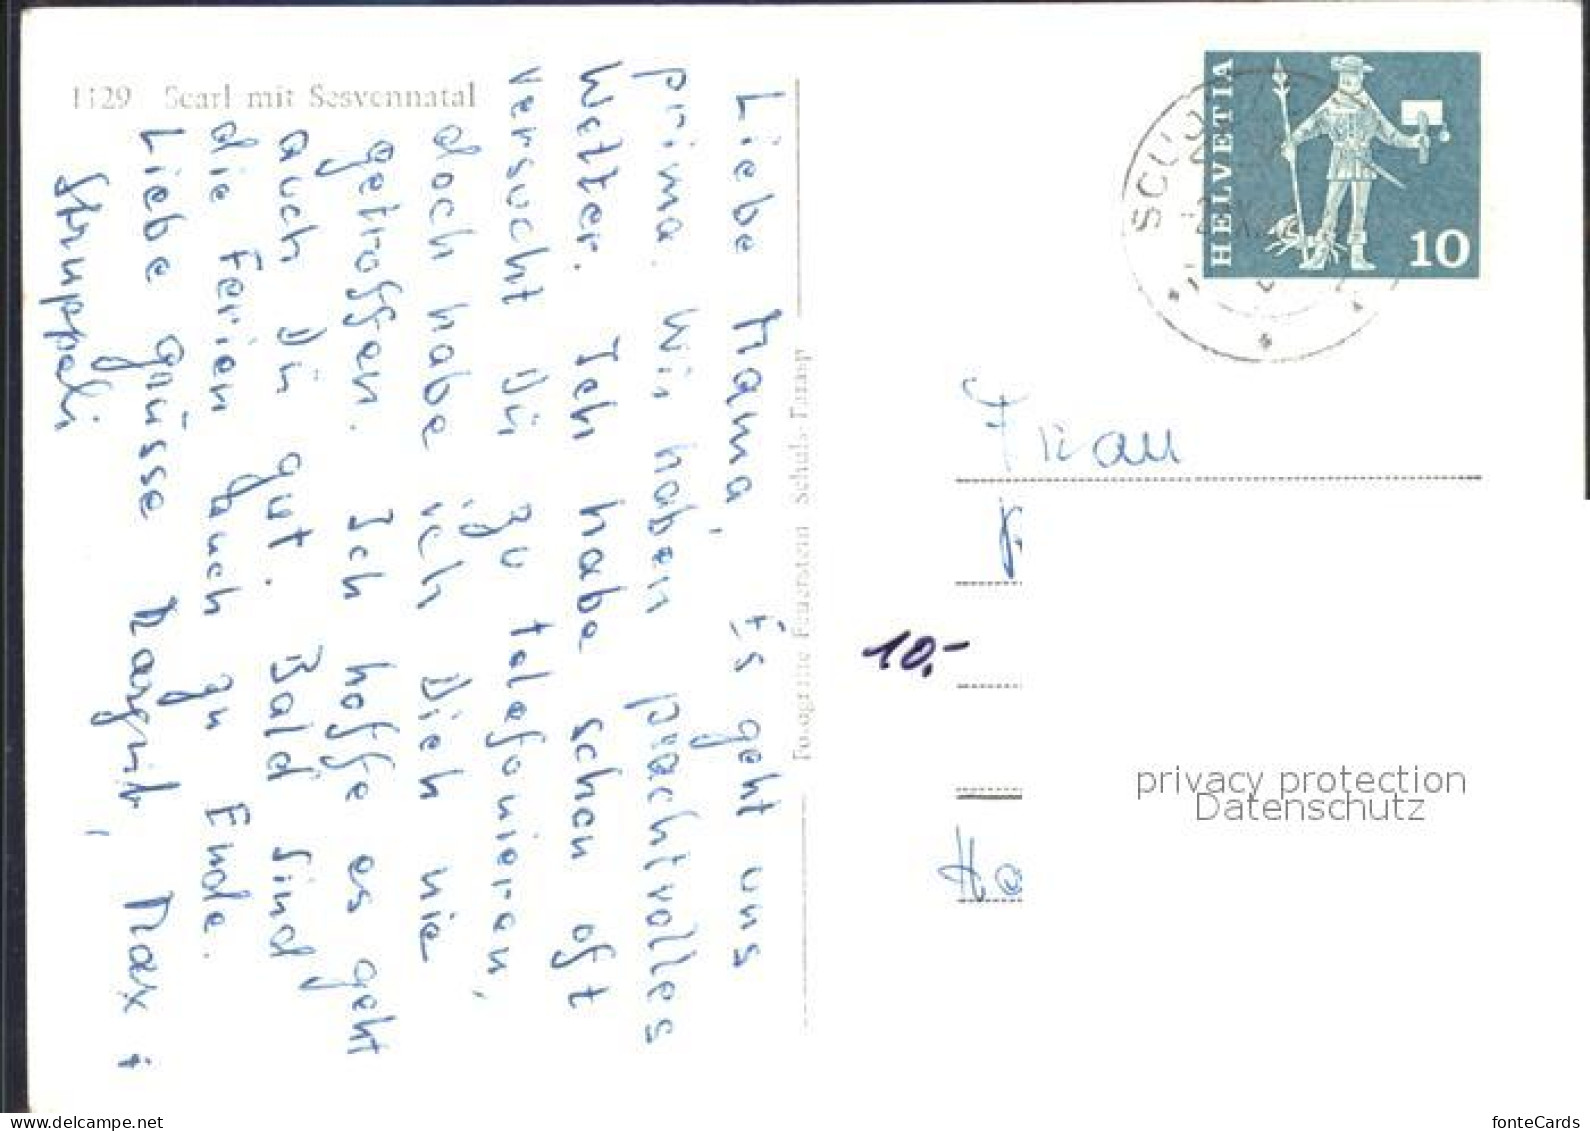 1129 Scarl mit Sesvennatal
Liebe Mama, Es geht uns
prima. Wir haben prachtvolles
Wetter. Ich habe schon oft
versucht Dir zu telefonieren,
doch habe ich Dich nie
getroffen. Ich hoffe es geht
auch Dir gut. Bald sind
die Ferien auch zu Ende.
Liebe Grüsse Margrit, Max +
Struppeli
Fotografie Feuerstein Schuls-Tarasp
SCUOL
HELVETIA
10
Frau
10.-
privacy protection
Datenschutz
www.delcampe.net
fonteCards